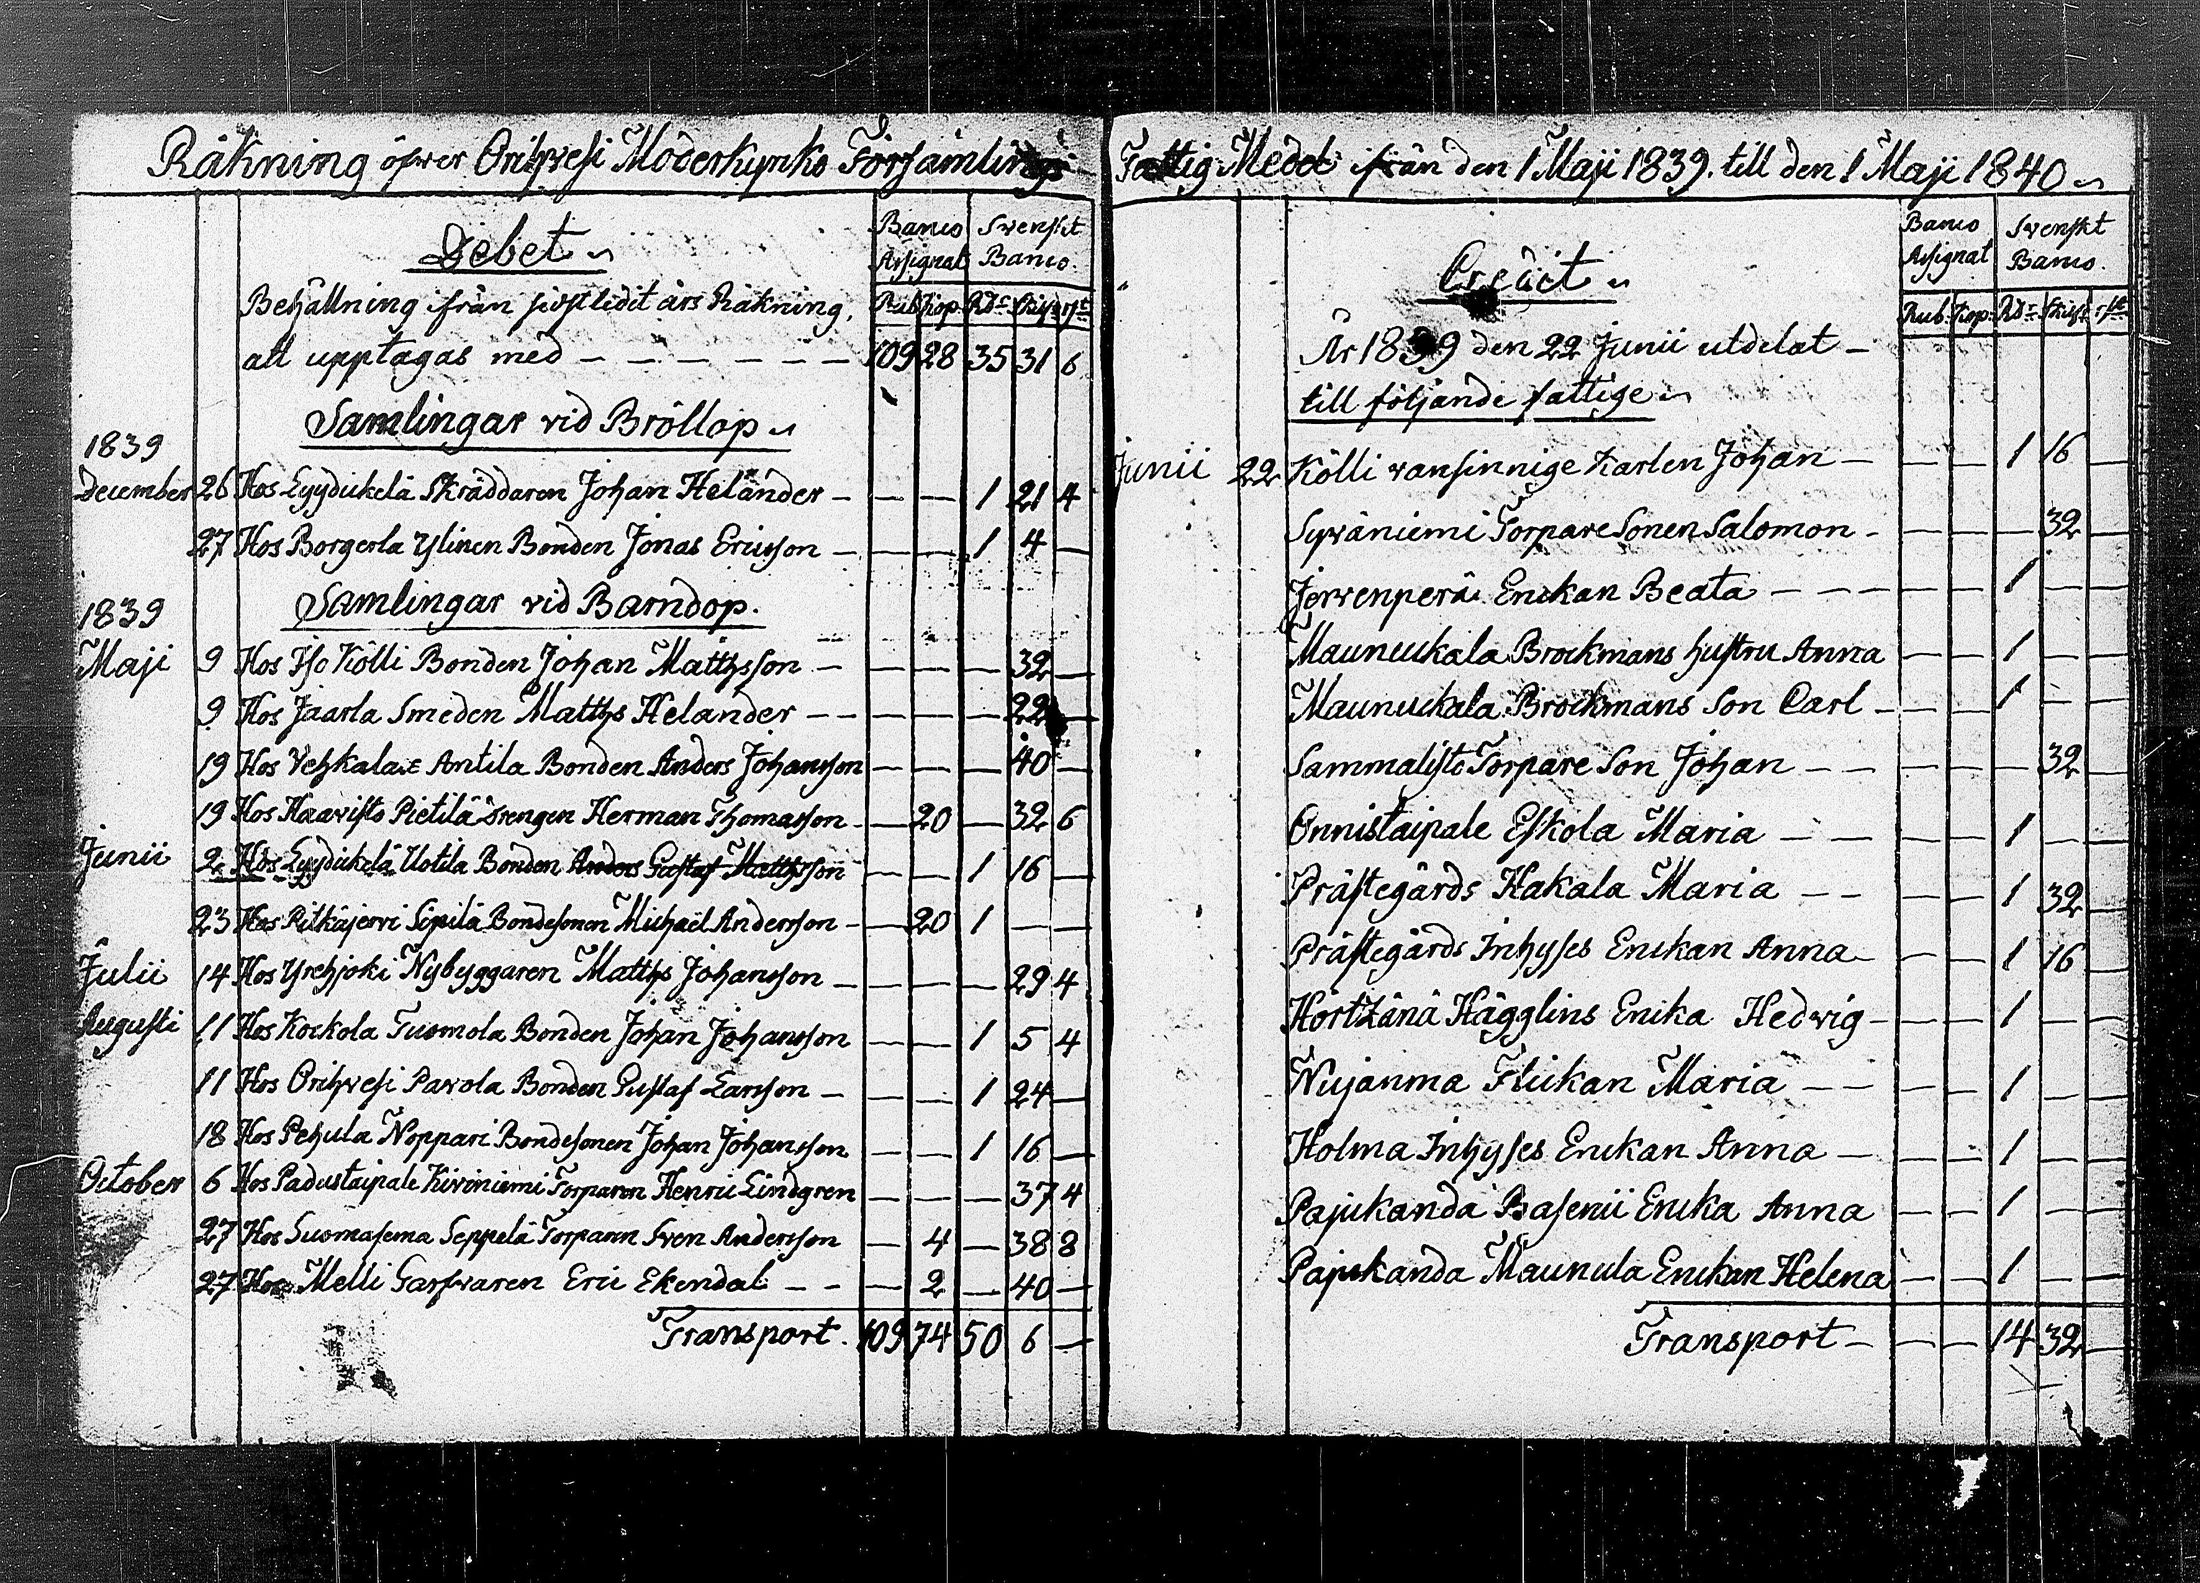 Räkning öfver Orihvesi Moderkyrko Församlings
Debet
Banco Assignat Svenskt Banco.
Behållning ifrån sidstledit års Räkning, Rub. Kop. Rdr Skill. rst.
att upptagas med - - - - - - 109 28 35 31 6
Samlingar vid Bröllop
1839
December 26 Hos Eyydickelä Skräddaren Johan Helander - - - 1 21 4
27 Hos Borgerla Ylinen Bonden Jonas Ericsson - - - 1 4 -
Samlingar vid Barndop.
1839
Maji 9 Hos Iso Kölli Bonden Johan Mattsson - - - - 32 -
9 Hos Jaarla Smeden Matths Helander - - - - - 22 -
19 Hos Vehkala Antila Bonden Anders Johansson - - - 40 -
19 Hos Haavisto Pietilä Drengen Herman Thomasson - - 20 - 32 6
Junii 2 Hos Eyydickelä Uotila Bonden Anders Gustaf Mattsson - - 1 16 -
23 Hos Pitkäjervi Sipilä Bondesonen Michaël Andersson - - 20 1 - -
Julii 14 Hos Yrehjoki Nybyggaren Matths Johansson - - - - 29 4
Augusti 11 Hos Kockola Tuomola Bonden Johan Johansson - - 1 5 4
11 Hos Orihvesi Pavola Bonden Gustaf Larsson - - - 1 24 -
18 Hos Pehula Noppari Bondesonen Johan Johansson - - 1 16 -
October 6 Hos Padustaipale Kiviniemi Torparen Henric Lindgren - - - 37 4
27 Hos Suomasema Seppelä Torparen Sven Andersson - 4 - 38 8
27 Hos Melli Garfvaren Eric Ekendal - - - 2 - 40 -
Transport. 109 74 50 6 -
Fattig Medel ifrån den 1 Maji 1839. till den 1 Maji 1840
Credit
Banco Assignat Svenskt Banco.
Rub. Kop. Rdr Skill. rst.
År 1839 den 22 Junii utdelat -
till följande fattige
Junii 22 Kölli vansinnige Karlen Johan - - - 1 16 -
Syväniemi Torpare Sonen Salomon - - - - 32 -
Jervenperä Enckan Beata - - - - - 1 - -
Maunuckala Brockmans hustru Anna - - 1 - -
Maunuckala Brockmans Son Carl - - - 1 - -
Sammalisto Torpare Son Johan - - - - - 32 -
Onnistaipale Eskola Maria - - - - 1 - -
Prästegårds Hakala Maria - - - - 1 32 -
Prästegårds Inhyses Enckan Anna - - - 1 16 -
Hörtzänä Hägglins Enka Hedvig - - - 1 - -
Nujanma Flickan Maria - - - - 1 - -
Holma Inhyses Enckan Anna - - - 1 - -
Pajukanda Basenii Encka Anna - - 1 - -
Pajukanda Maunula Enckan Helena - - 1 - -
Transport - - - 14 32 -